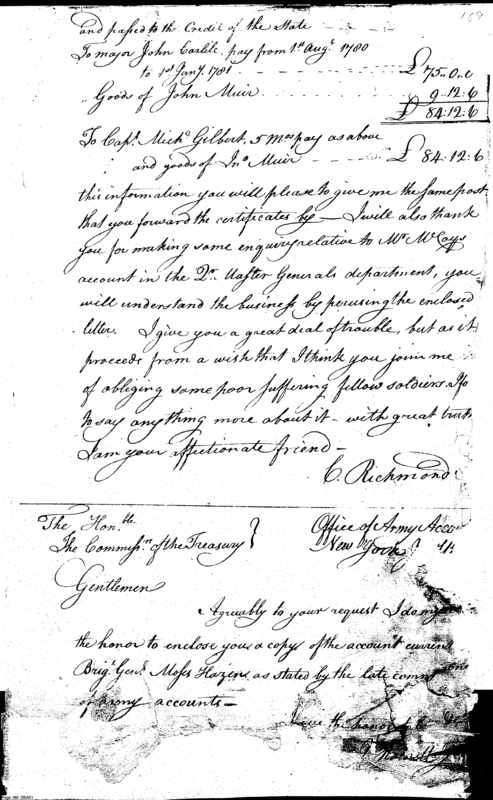 169
and passed to the Credit of the State
To major John Carlile pay from 1st Augt 1780
to 1st Jany. 1781 £ 75..0..0
.. Goods of John Muir 9..12:6
£ 84:12:6
To Capt. Michl Gilbert, 5 Mos pay as above
and goods of Jno Muir £ 84:12:6
this information you will please to give me the same post
that you forward the certificates by — I will also thank
you for making some enquiry relative to Mr McCoys
account in the Qr. Master Generals department, you
will understand the business by perusing the enclosed
letter. I give you a great deal of trouble, but as it
proceeds from a wish that I think you join me
of obliging some poor suffering fellow soldiers. Is
to say anything more about it — with great truth
I am your affectionate friend —
C. Richmond
The Honble
The Commissrs of the Treasury }
Office of Army Accou
New York
Gentlemen
Agreeably to your request I do my
the honor to enclose you a copy of the account current
Brigr Genl Moses Hazens as stated by the late comm
of army accounts —
the honor to
Page 169 DEA01